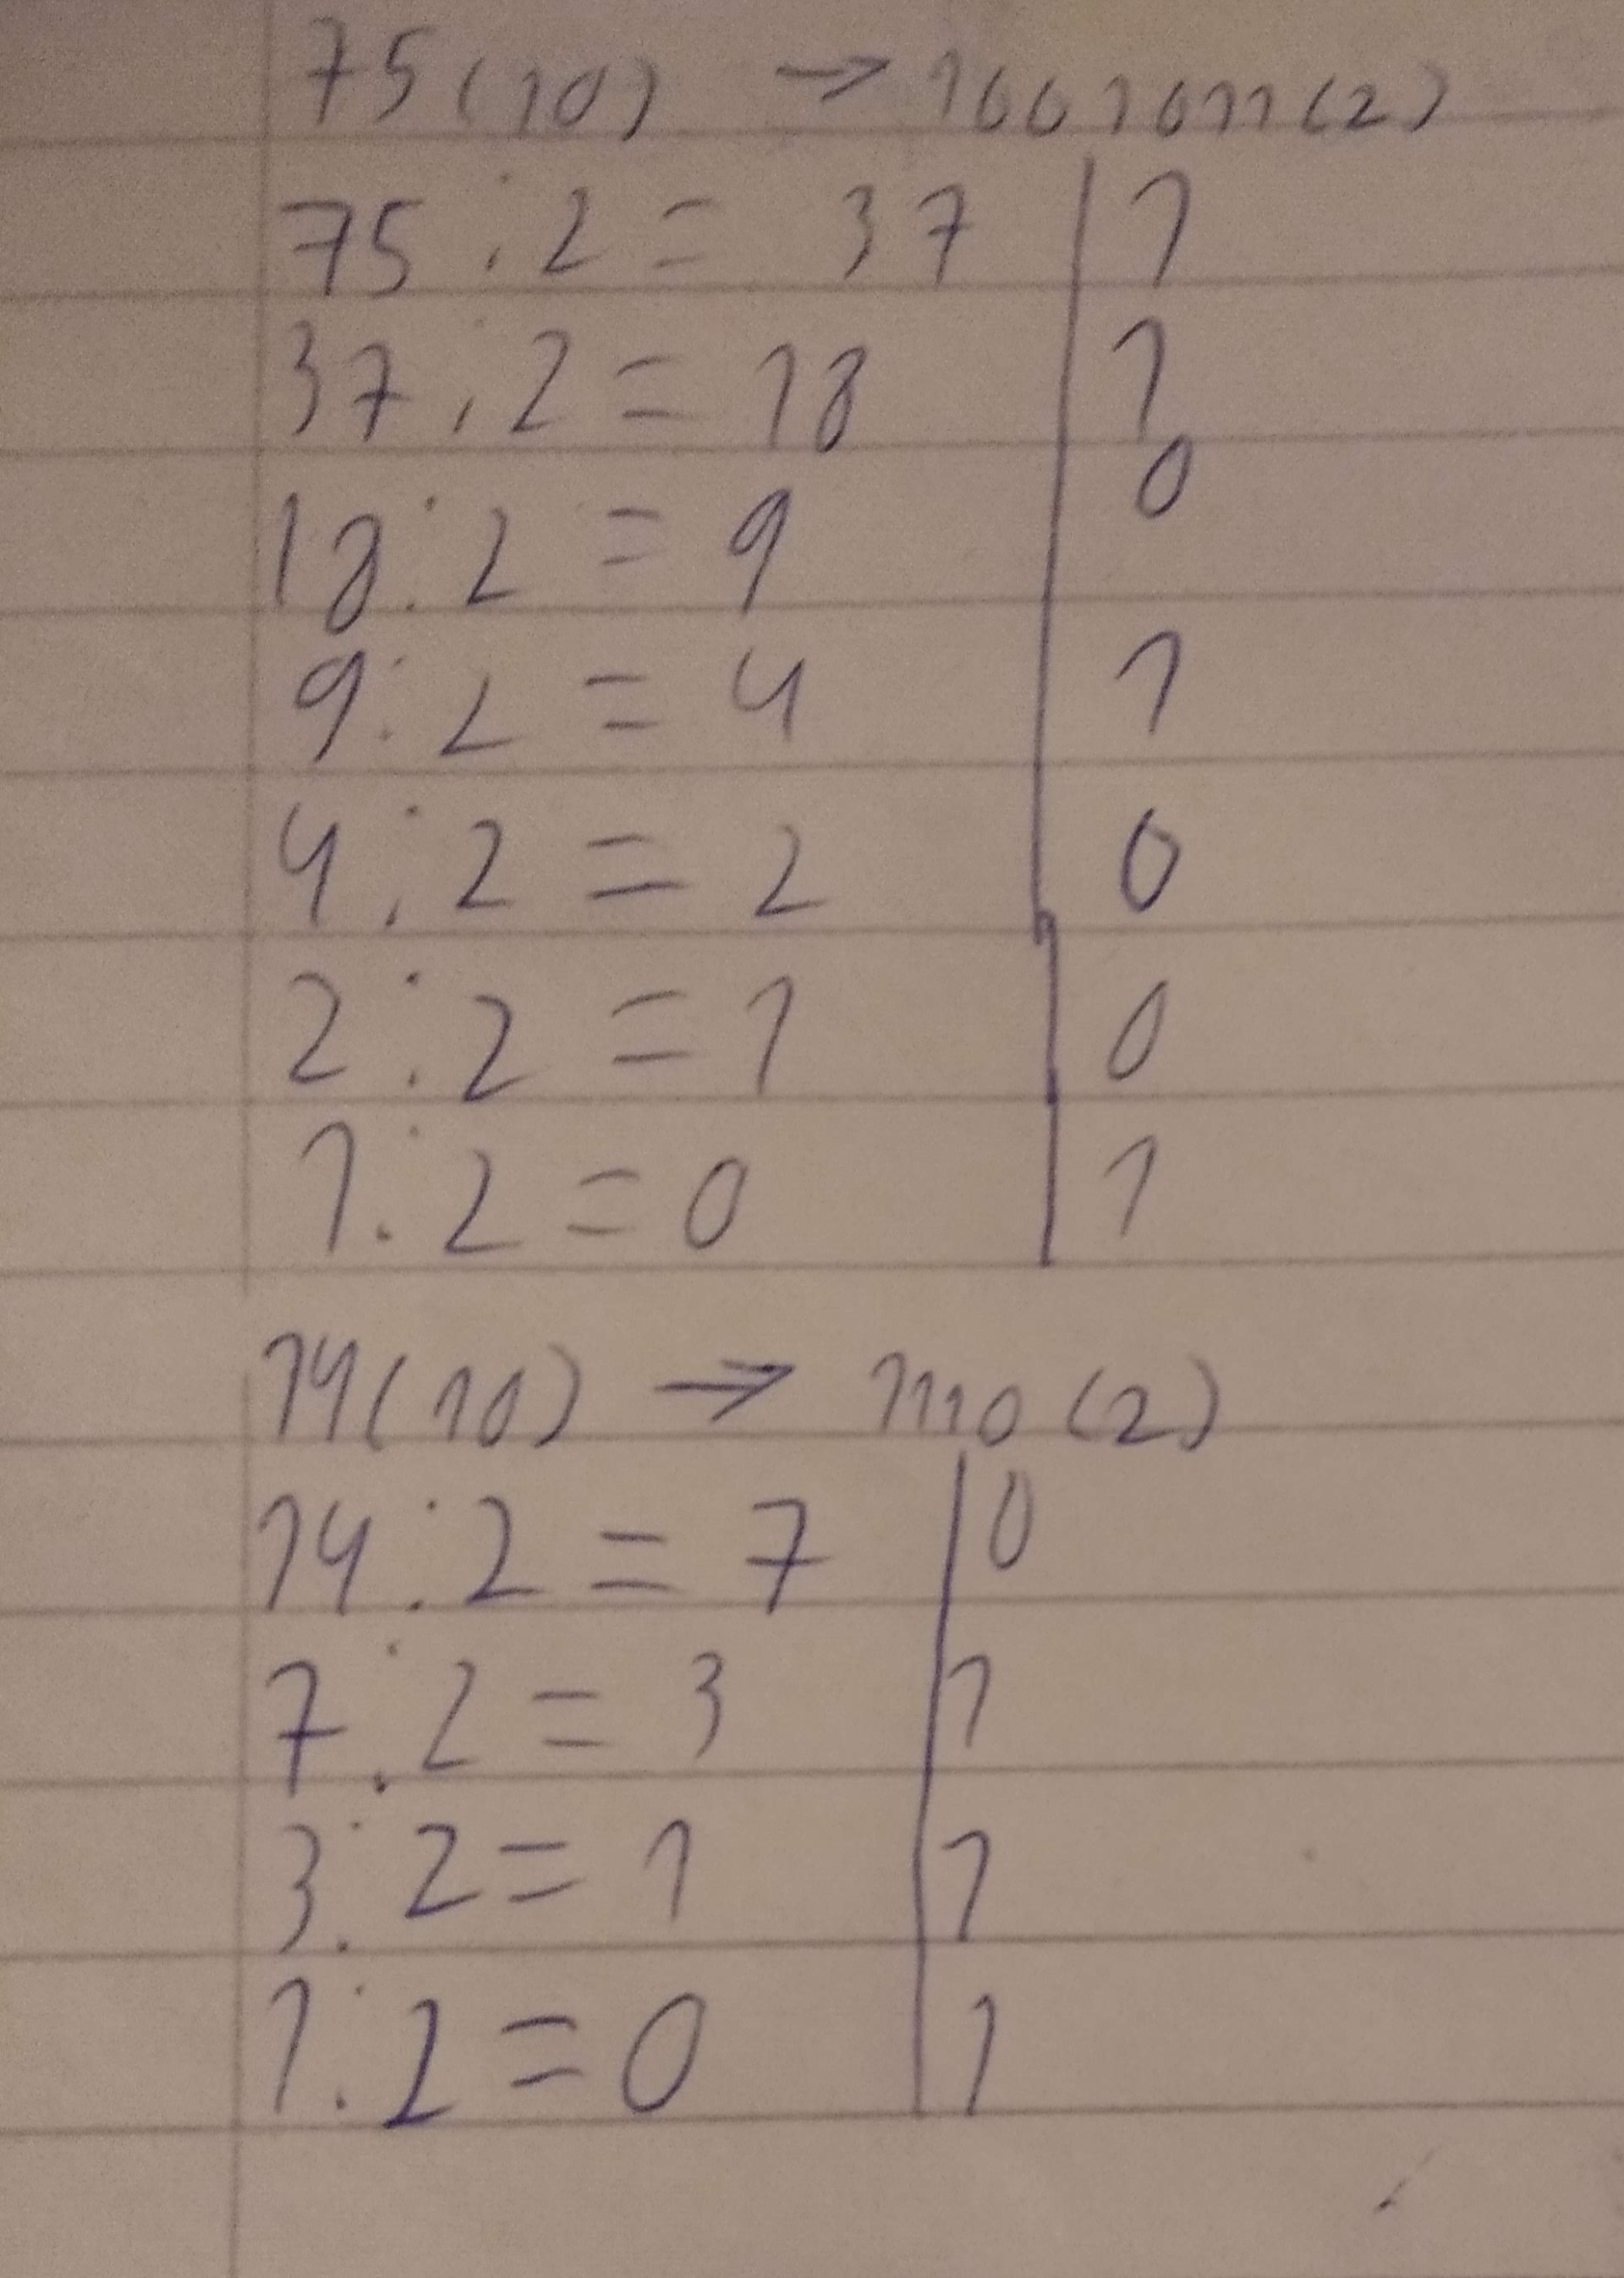 75(10) → 1001011(2)
75 : 2 = 37 | 1
37 : 2 = 18 | 1
18 : 2 = 9 | 0
9 : 2 = 4 | 1
4 : 2 = 2 | 0
2 : 2 = 1 | 0
1 : 2 = 0 | 1
14(10) → 1110(2)
14 : 2 = 7 | 0
7 : 2 = 3 | 1
3 : 2 = 1 | 1
1 : 2 = 0 | 1